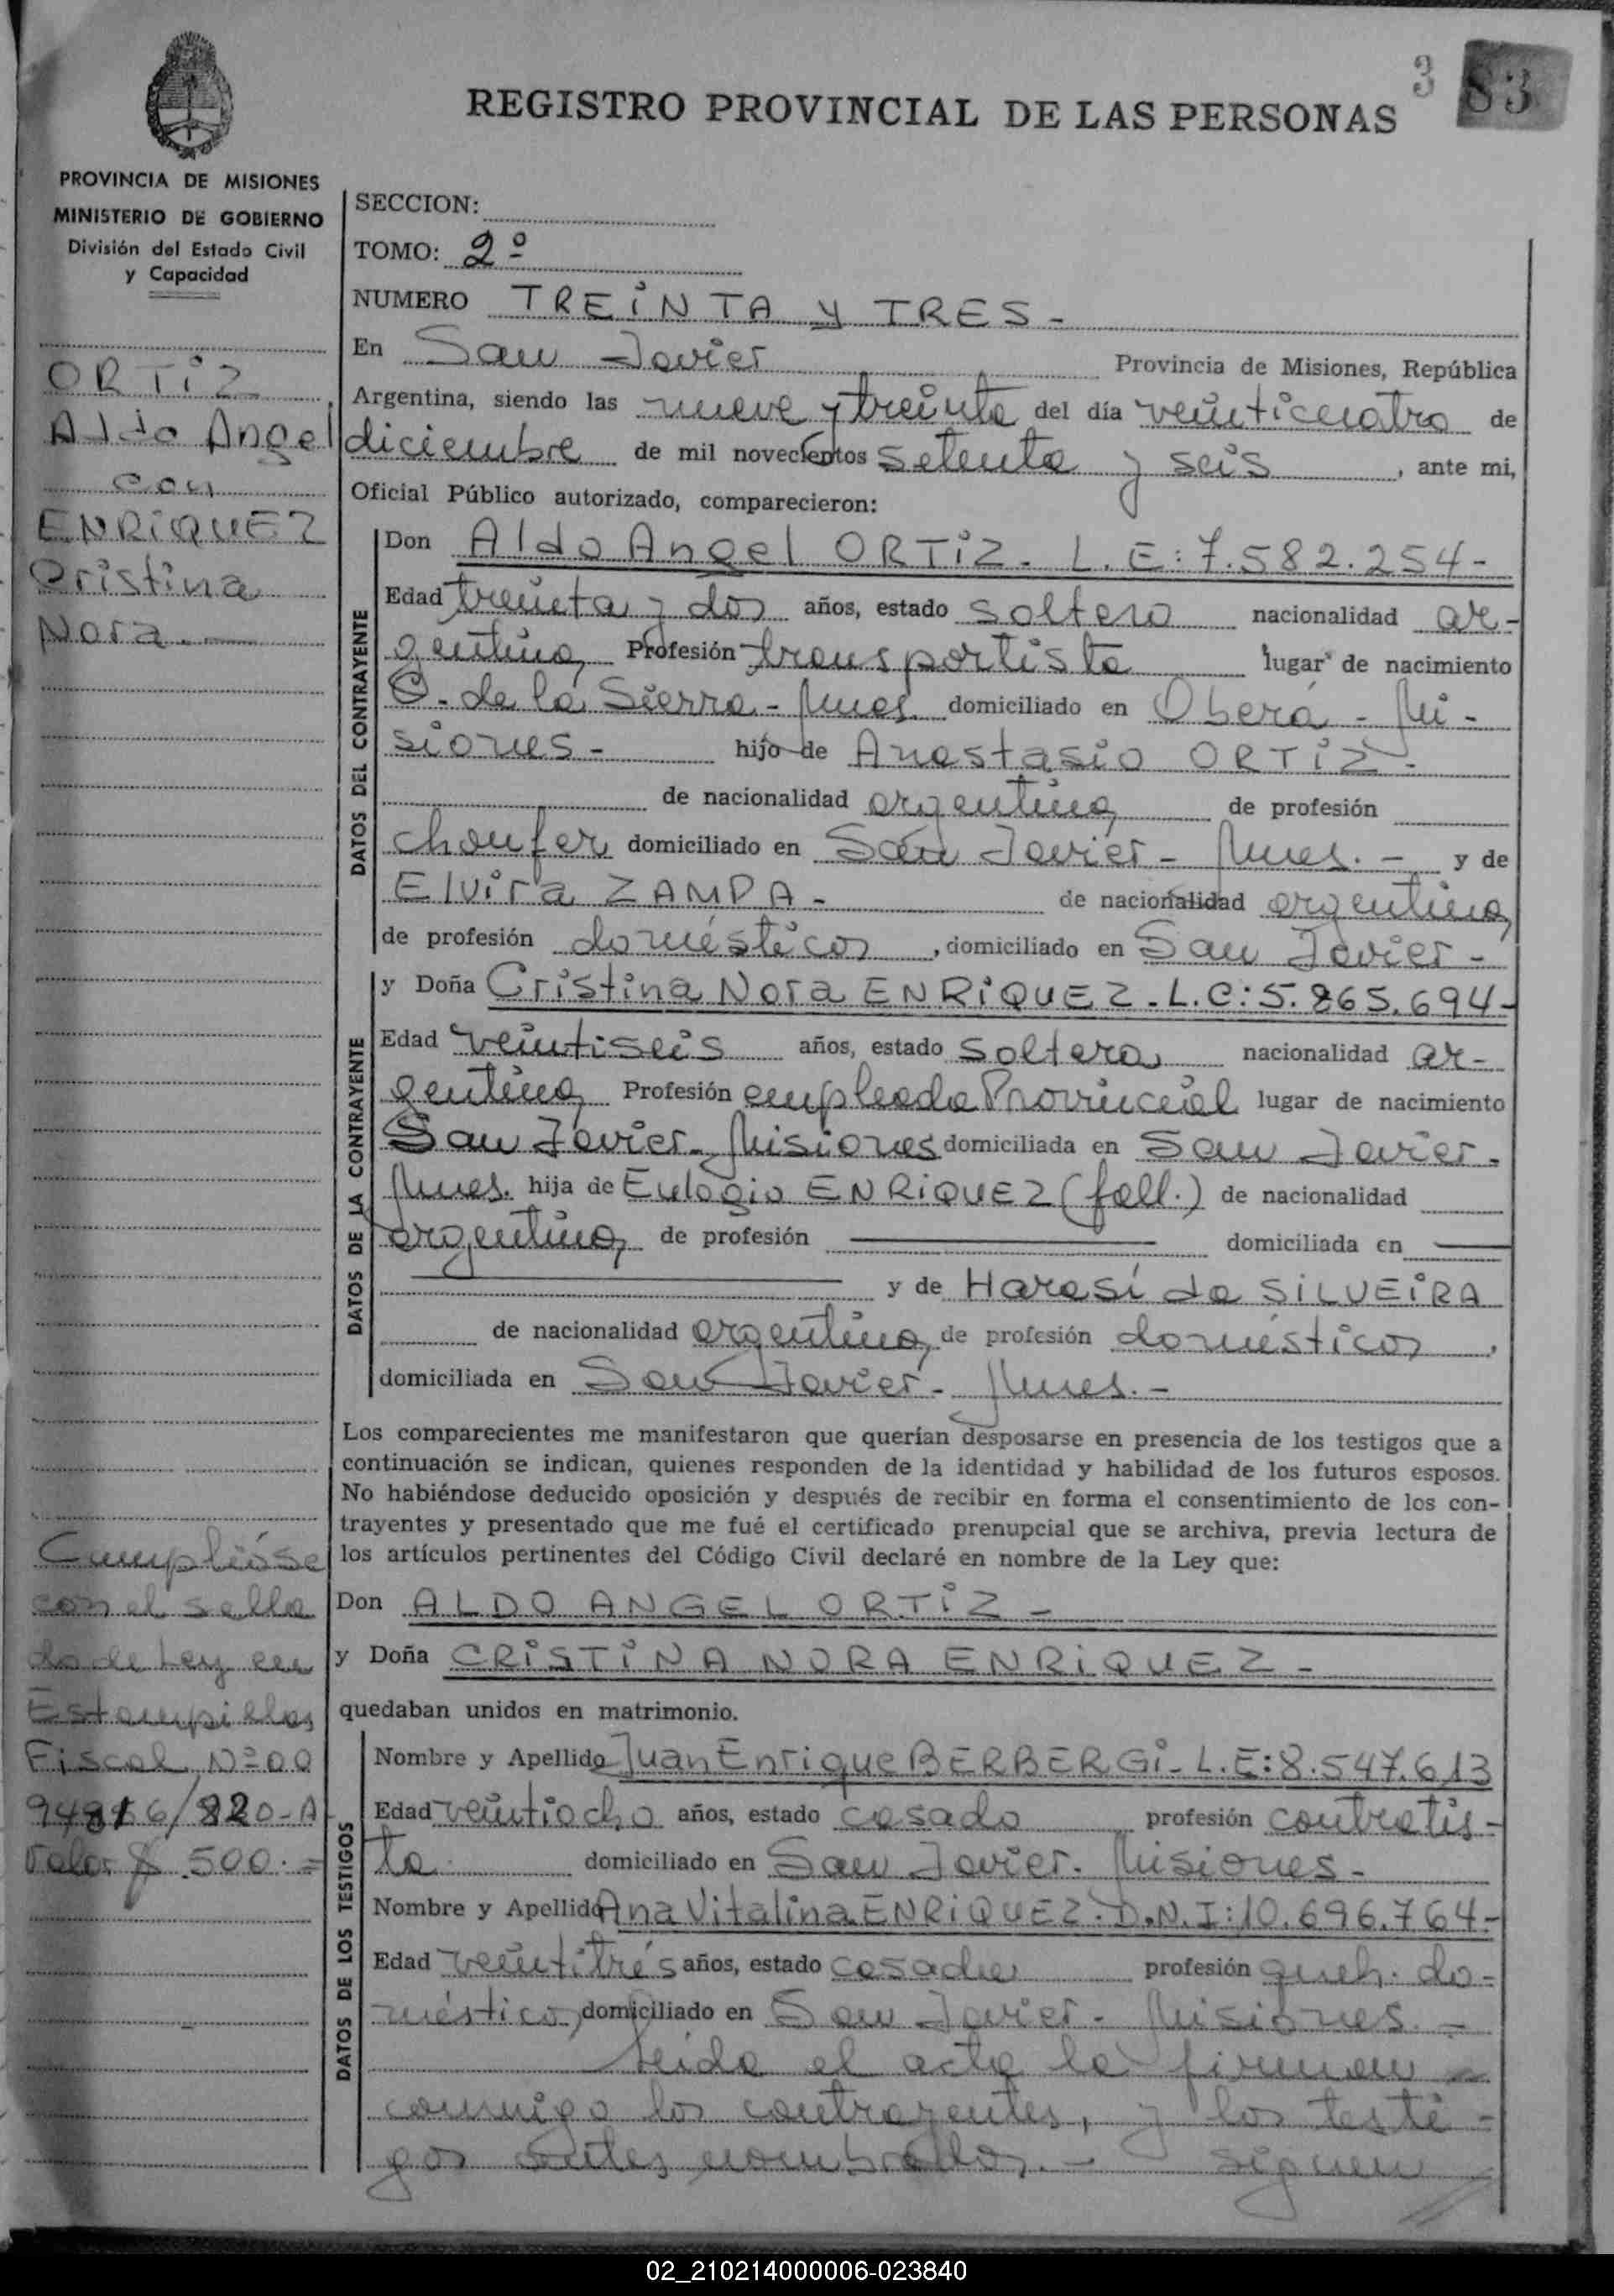 3 83
REGISTRO PROVINCIAL DE LAS PERSONAS
PROVINCIA DE MISIONES
MINISTERIO DE GOBIERNO
División del Estado Civil
y Capacidad
ORTIZ
Aldo Angel
con
ENRIQUEZ
Cristina
Nora.
Cumplióse
con el sella
do de Ley en
Estampillas
Fiscal Nº 00
94816/820-A
Valor $ 500.=
SECCION:
TOMO: 2º
NUMERO TREINTA Y TRES -
En San Javier Provincia de Misiones, República
Argentina, siendo las nueve y treinta del día veinticuatro de
diciembre de mil novecientos setenta y seis , ante mi,
Oficial Público autorizado, comparecieron:
DATOS DEL CONTRAYENTE
Don Aldo Angel ORTIZ. L.E: 7.582.254-
Edad treinta y dos años, estado soltero nacionalidad ar-
gentina Profesión transportista lugar de nacimiento
C. de la Sierra - Mnes. domiciliado en Oberá - Mi-
siones - hijo de Anastasio ORTIZ -
de nacionalidad argentina de profesión
choufer domiciliado en San Javier - Mnes. - y de
Elvira ZAMPA - de nacionalidad argentina
de profesión domésticos , domiciliado en San Javier -
DATOS DE LA CONTRAYENTE
y Doña Cristina Nora ENRIQUEZ. L.C: 5.865.694-
Edad veintiseis años, estado soltera nacionalidad ar-
gentina Profesión empleada Provincial lugar de nacimiento
San Javier - Misiones domiciliada en San Javier -
Mnes. hija de Eulogio ENRIQUEZ (fall.) de nacionalidad
argentina de profesión domiciliada en
y de Harasí da SILVEIRA
de nacionalidad argentina de profesión domésticos ,
domiciliada en San Javier - Mnes. -
Los comparecientes me manifestaron que querían desposarse en presencia de los testigos que a
continuación se indican, quienes responden de la identidad y habilidad de los futuros esposos.
No habiéndose deducido oposición y después de recibir en forma el consentimiento de los con-
trayentes y presentado que me fué el certificado prenupcial que se archiva, previa lectura de
los artículos pertinentes del Código Civil declaré en nombre de la Ley que:
Don ALDO ANGEL ORTIZ -
y Doña CRISTINA NORA ENRIQUEZ -
quedaban unidos en matrimonio.
DATOS DE LOS TESTIGOS
Nombre y Apellido Juan Enrique BERBERGi - L.E: 8.547.613
Edad veintiocho años, estado casado profesión contratis-
ta domiciliado en San Javier - Misiones -
Nombre y Apellido Ana Vitalina ENRIQUEZ. D.N.I: 10.696.764-
Edad veintitrés años, estado casada profesión queh. do-
méstico, domiciliado en San Javier - Misiones. -
Leida el acta la firman
conmigo los contrayentes, y los testi-
gos antes nombrados. - siguen
02_210214000006-023840